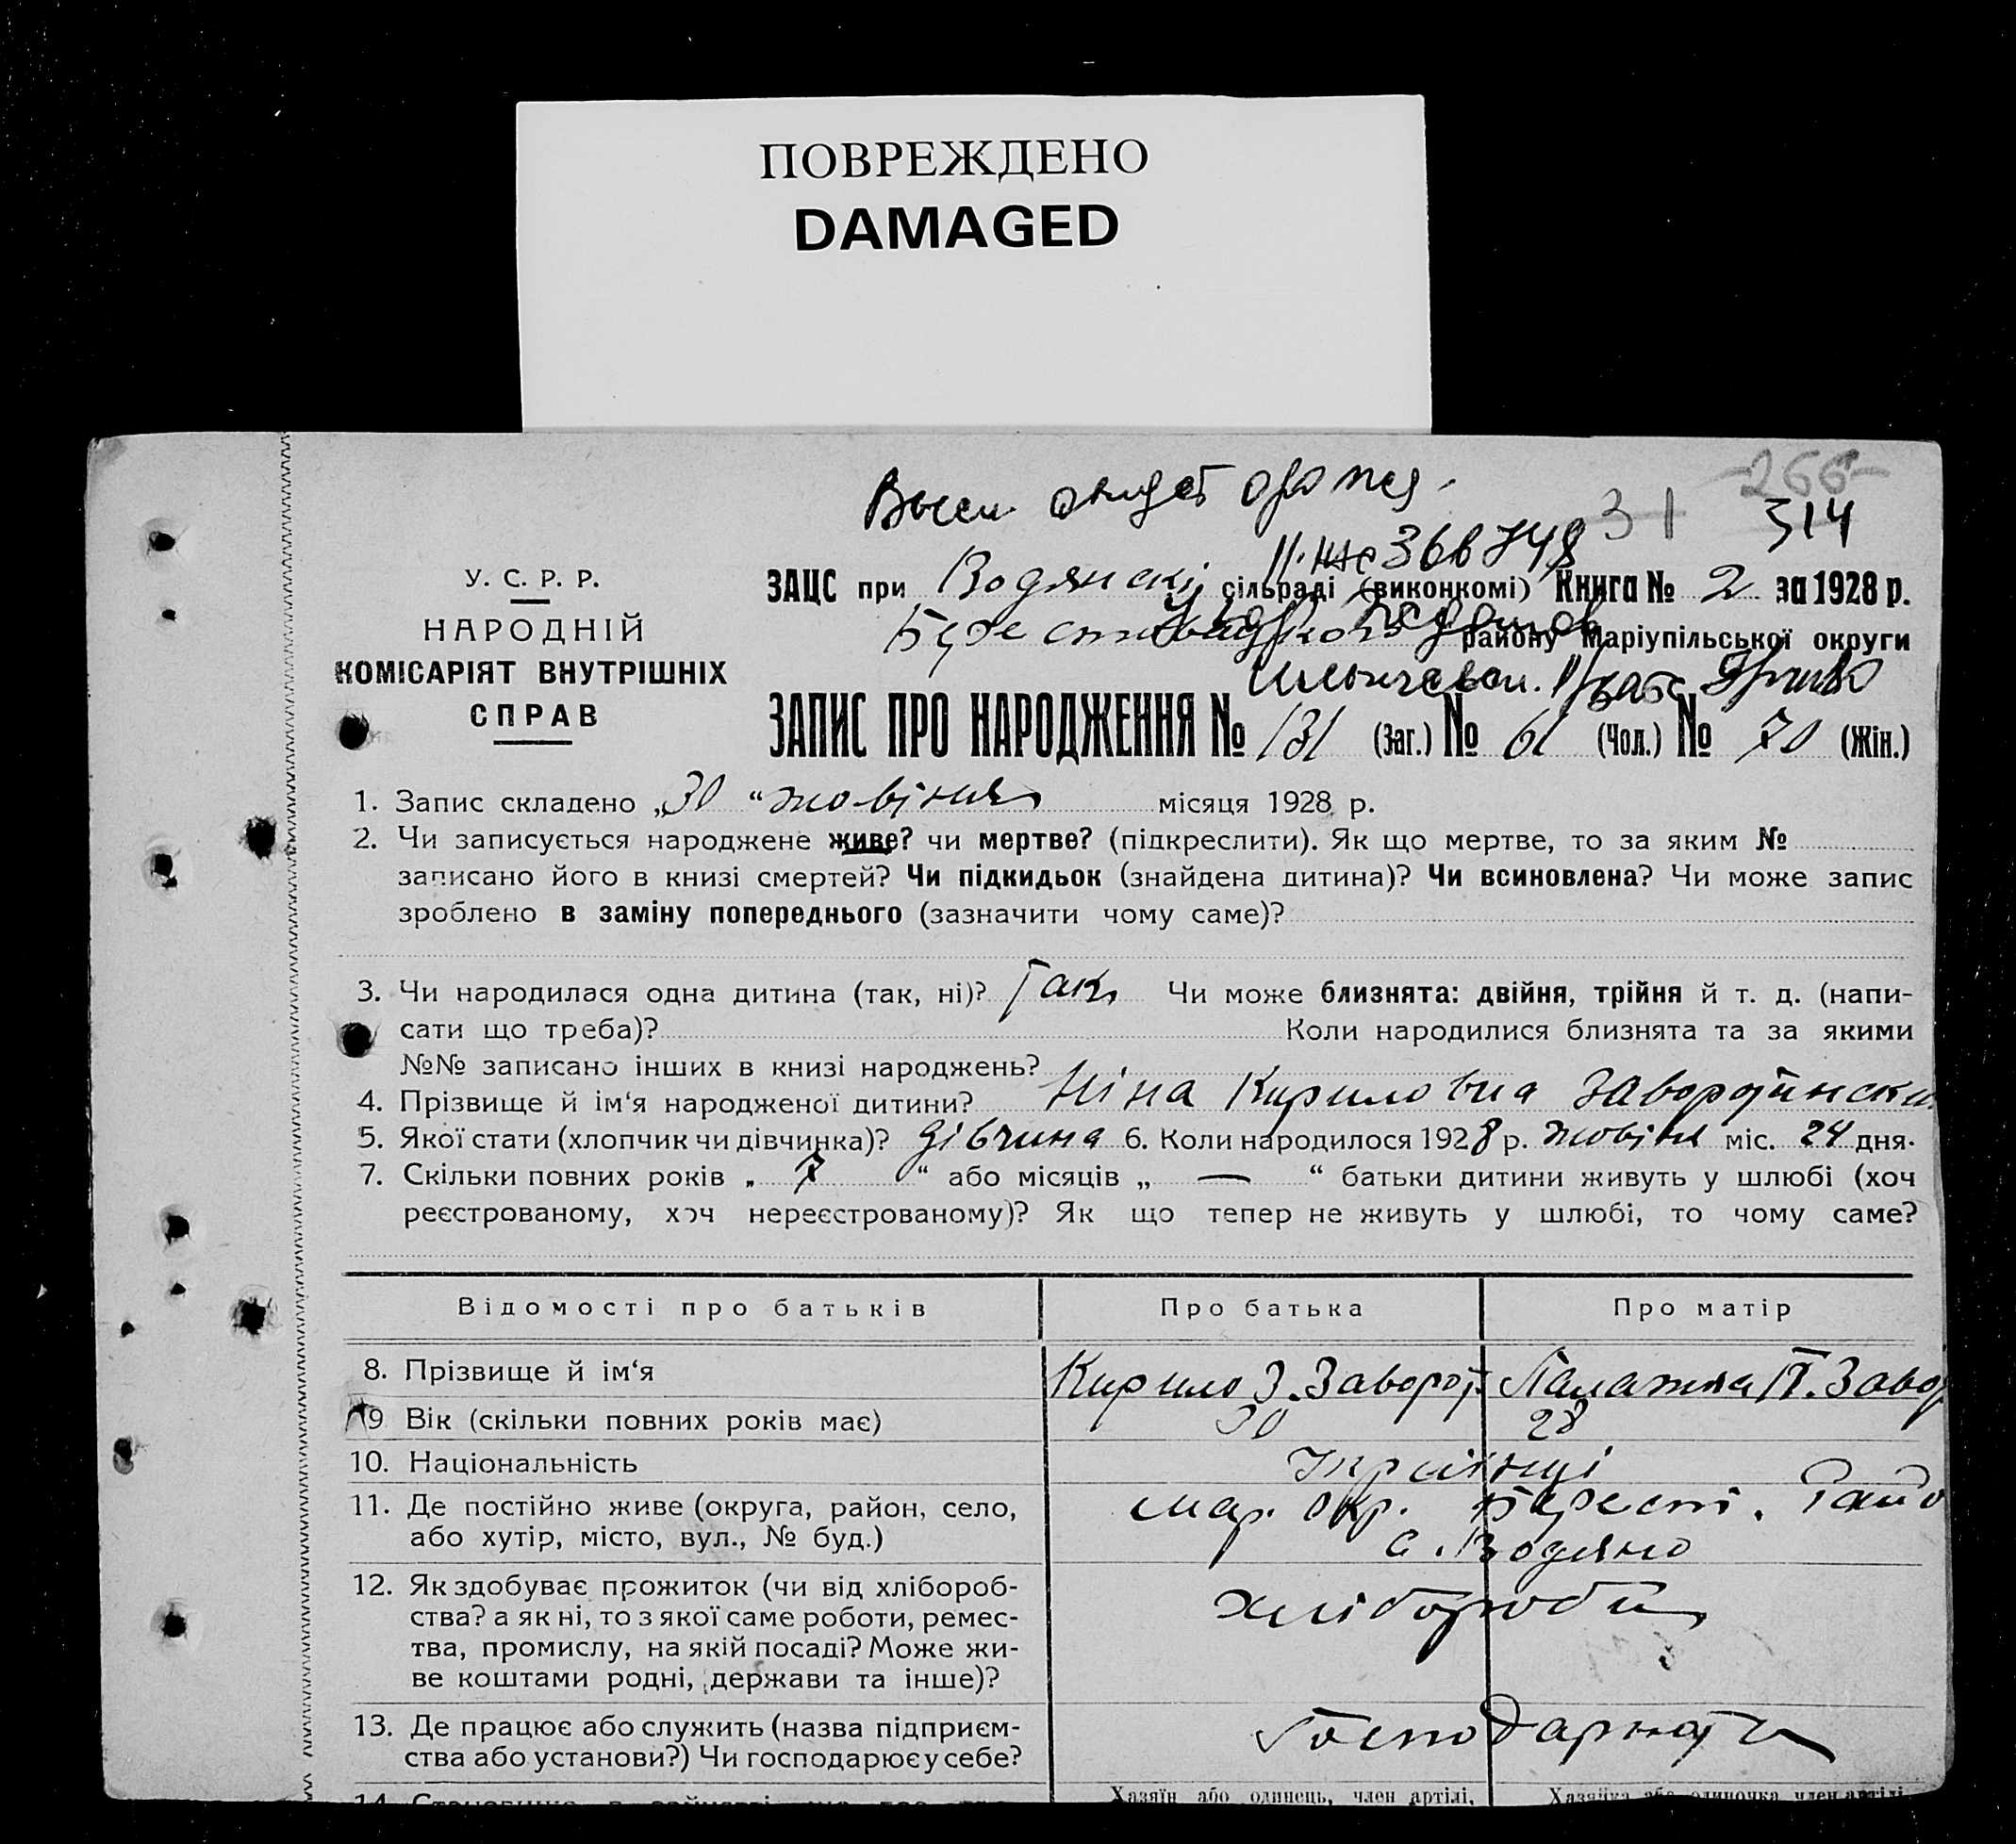 ПОВРЕЖДЕНО
DAMAGED
-266-
31 314
366748
У. С. Р. Р.
НАРОДНІЙ
КОМІСАРІЯТ ВНУТРІШНІХ
СПРАВ
ЗАЦС при Водянскі сільраді (виконкомі) Книга № 2 за 1928 р.
району Маріупільської округи
ЗАПИС ПРО НАРОДЖЕННЯ № 131 (Заг.) № 61 (Чол.) № 70 (Жін.)
1. Запис складено „30“ жовтня місяця 1928 р.
2. Чи записується народжене живе? чи мертве? (підкреслити). Як що мертве, то за яким №
записано його в книзі смертей? Чи підкидьок (знайдена дитина)? Чи всиновлена? Чи може запис
зроблено в заміну попереднього (зазначити чому саме)?
3. Чи народилася одна дитина (так, ні)? Так Чи може близнята: двійня, трійня й т. д. (напи-
сати що треба)? Коли народилися близнята та за якими
№№ записано інших в книзі народжень?
4. Прізвище й ім‘я народженої дитини? Ніна Кириловна
5. Якої стати (хлопчик чи дівчинка)? Дівчина 6. Коли народилося 1928 р. жовтня міс. 24 дня.
7. Скільки повних років „ 7 “ або місяців „ — “ батьки дитини живуть у шлюбі (хоч
реєстрованому, хоч нереєстрованому)? Як що тепер не живуть у шлюбі, то чому саме?
Відомості про батьків Про батька Про матір
8. Прізвище й ім‘я Кирило З. П.
9 Вік (скільки повних років має) 30 28
10. Національність Українці
11. Де постійно живе (округа, район, село, Мар. Окр. Берест.
або хутір, місто, вул., № буд.) с. Водяно
12. Як здобуває прожиток (чи від хлібороб- хлібороби
ства? а як ні, то з якої саме роботи, ремес-
тва, промислу, на якій посаді? Може жи-
ве коштами родні, держави та інше)?
13. Де працює або служить (назва підприєм-
ства або установи?) Чи господарює у себе?
Хазяїн або одинець, член артілі, Хазяйка або одиночка член артілі